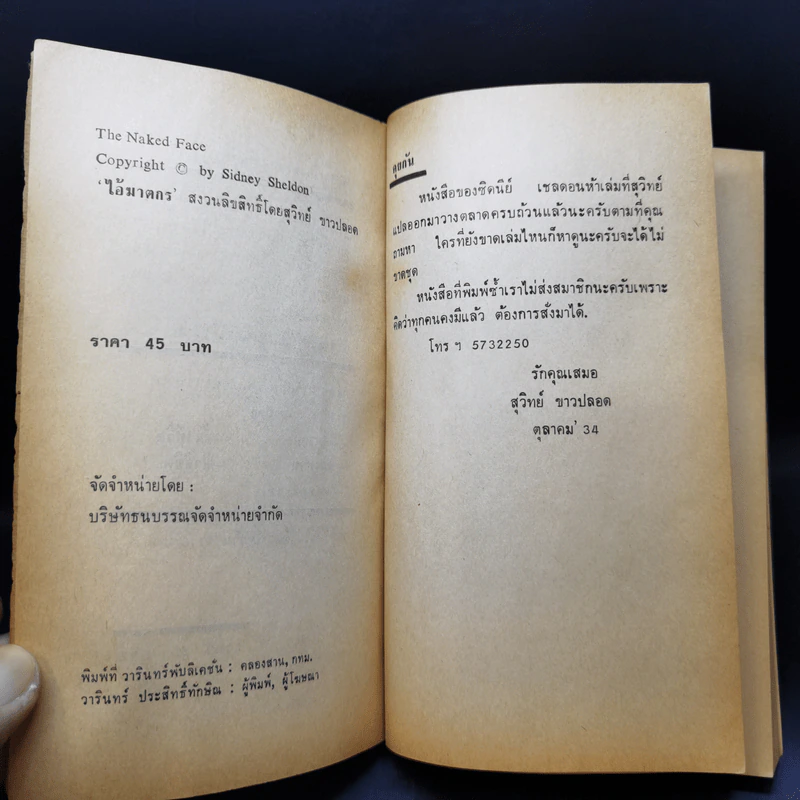 The Naked Face
Copyright © by Sidney Sheldon
'ไอ้ฆาตกร' สงวนลิขสิทธิ์โดยสุวิทย์ ขาวปลอด
ราคา 45 บาท
จัดจำหน่ายโดย :
บริษัทธนบรรณจัดจำหน่ายจำกัด
พิมพ์ที่ วารินทร์พับลิเคชัน : คลองสาน, กทม.
วารินทร์ ประสิทธิ์ทักษิณ : ผู้พิมพ์, ผู้โฆษณา
คุยกัน
หนังสือของซิดนีย์ เชลดอนห้าเล่มที่สุวิทย์
แปลออกมาวางตลาดครบถ้วนแล้วนะครับตามที่คุณ
ถามหา ใครที่ยังขาดเล่มไหนก็หาดูนะครับจะได้ไม่
ขาดชุด
หนังสือที่พิมพ์ซ้ำเราไม่ส่งสมาชิกนะครับเพราะ
คิดว่าทุกคนคงมีแล้ว ต้องการสั่งมาได้.
โทร ฯ 5732250
รักคุณเสมอ
สุวิทย์ ขาวปลอด
ตุลาคม' 34